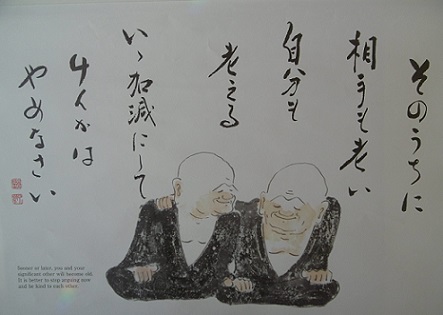 そのうちに
相手も老い
自分も
老える
いゝ加減にして
ケンカは
やめなさい
Sooner or later, you and your
significant other will become old.
It is better to stop arguing now
and be kind to each other.